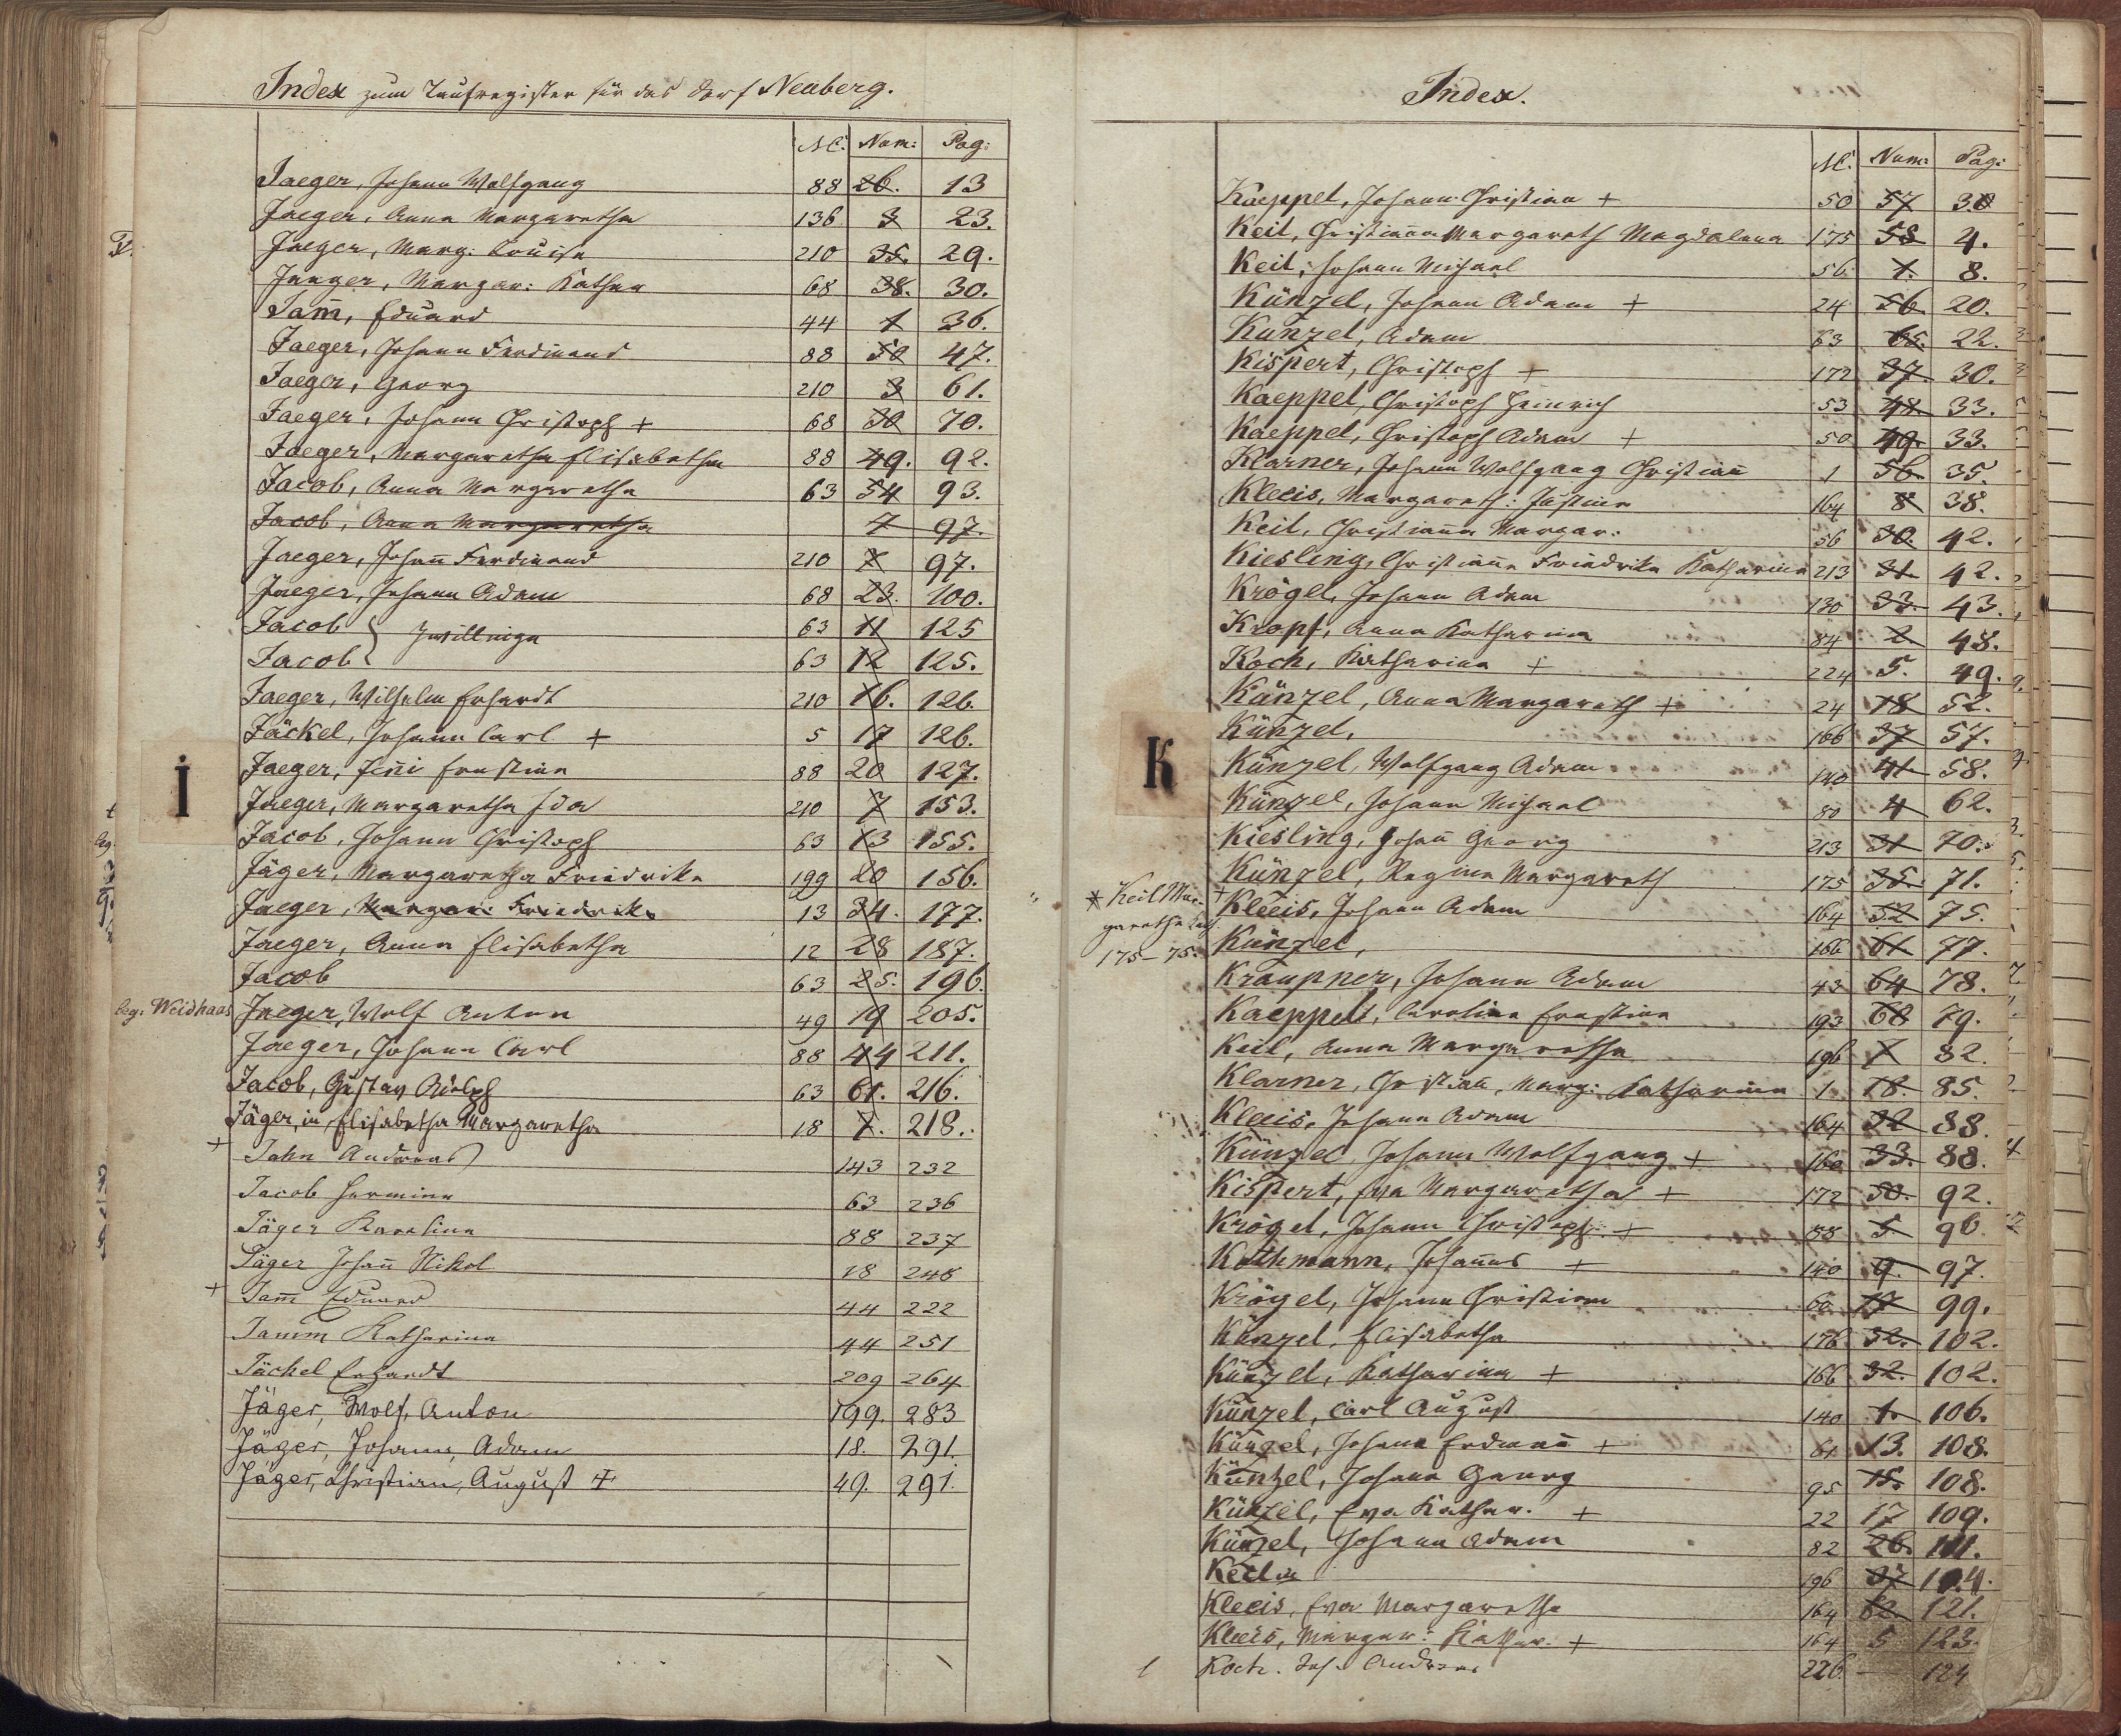 Index zum Taufregister für das Dorf Neuberg.
N.C. Num: Pag:
Jaeger, Johann Wolfgang 88 26. 13
Jaeger, Anna Margaretha 136 3 23.
Jaeger, Marg: Louisa 210 35. 29.
Jaeger, Margar: Kathar 68 38. 30.
Jam̄, Eduard 44 1 36.
Jaeger, Johann Ferdinand 88 50 47.
Jaeger, Georg 210 3 61.
Jaeger, Johann Christoph + 68 30 70.
Jaeger, Margaretha Elisabetha 88 49. 92.
Jacob, Anna Margaretha 63 54 93.
Jacob, Anna Margaretha 7 97.
Jaeger, Johan̄ Ferdinand 210 7 97.
Jaeger, Johann Adam 68 23. 100.
Jacob } Zwillinge 63 11 125
Jacob 63 12 125.
Jaeger, Wilhelm Erhardt 210 16. 126.
Jäckel, Johann Carl + 5 17 126.
Jaeger, Jen̄i Ernstina 88 20 127.
I
Jaeger, Margaretha Ida 210 7 153.
Jacob, Johann Christoph 63 13 155.
Jäger, Margaretha Friedrika 199 20 156.
Jaeger, Margar: Friedrika 13 34. 177.
Jaeger, Anna Elisabetha 12 28 187.
Jacob 63 25. 196.
leg. Weidhaas Jaeger, Wolf Anton 49 19 205.
Jaeger, Johann Carl 88 44 211.
Jacob, Gustav Adolph 63 61. 216.
Jäger, in, Elisabetha Margaretha 18 7. 218.
+ Jahn Andreas 143 232
Jacob Hermine 63 236
Jäger Karolina 88 237
Jäger Johan̄ Nikol 18 248
+ Jam̄ Eduard 44 222
Jamm Katharina 44 251
Jäckel Erhardt 209 264
Jäger, Wolf, Anton 199. 283
Jäger, Johann, Adam 18. 291.
Jäger, Christian, August + 49. 291.
Index.
N.C. Num: Pag:
Kaeppel, Johann Christian + 50 57 38
Keil, Christianna Margareth Magdalena 175 58 4.
Keil, Johann Michael 56 1. 8.
Künzel, Johann Adam + 24 56. 20.
Künzel, Adam 63 65. 22.
Kispert, Christoph + 172 37. 30.
Kaeppel, Christoph Heinrich 53 48. 33.
Kaeppel, Christoph Adam + 50 49. 33.
Klarner, Johann Wolfgang Christian̄ 1 56. 35.
Kleeis, Margareth: Justina 164 8 38.
Keil, Christianna Margar: 56 30. 42.
Kiesling, Christianna Friedrika Katharina 213 31. 42.
Krögel, Johann Adam 130 33. 43.
Kropf, Anna Katharina 84 2 48.
Koch, Katharina + 224 5. 49.
Künzel, Anna Margareth + 24 18 52.
Künzel, 166 37 57.
K
Künzel, Wolfgang Adam 140 41 58.
Künzel, Johann Michael 80 4 62.
Kiesling, Johan̄ Georg 213 31 70.
Künzel, Regina Margareth 175 35. 71.
* Keil Mar-
garetha
175-75.
+ Kleeis, Johann Adam 164 52 75.
Künzel, 166 61 77.
Kraupner, Johann Adam 43 64 78.
Kaeppel, Carolina Ernstina 193 68 79.
Keil, Anna Margaretha 196 7 82.
Klarner, Christian Marg: Katharina 1 18. 85.
Kleeis, Johann Adam 164 32 88.
Künzel, Johann Wolfgang + 160 33. 88.
Kispert, Eva Margaretha + 172 50. 92.
Krögel, Johann Christoph: + 88 5 96
Kothmann, Johan̄es + 140 9. 97.
Krögel, Johann Christian 60 17 99.
Künzel, Elisabetha 176 32. 102.
Künzel, Katharina + 166 32. 102.
Künzel, Carl August 140 1. 106.
Künzel, Johann Erdman̄ + 61 13. 108.
Küntzel, Johann Georg 95 15. 108.
Künzel, Eva Kathar. + 22 17 109.
Künzel, Johann Adam 82 26. 111.
Keil 196 37
Kleeis, Eva Margaretha 164 62. 121.
Kleeis, Margar: Kathar. + 164 5 123.
Koch. Joh. Andreas 226. — 124